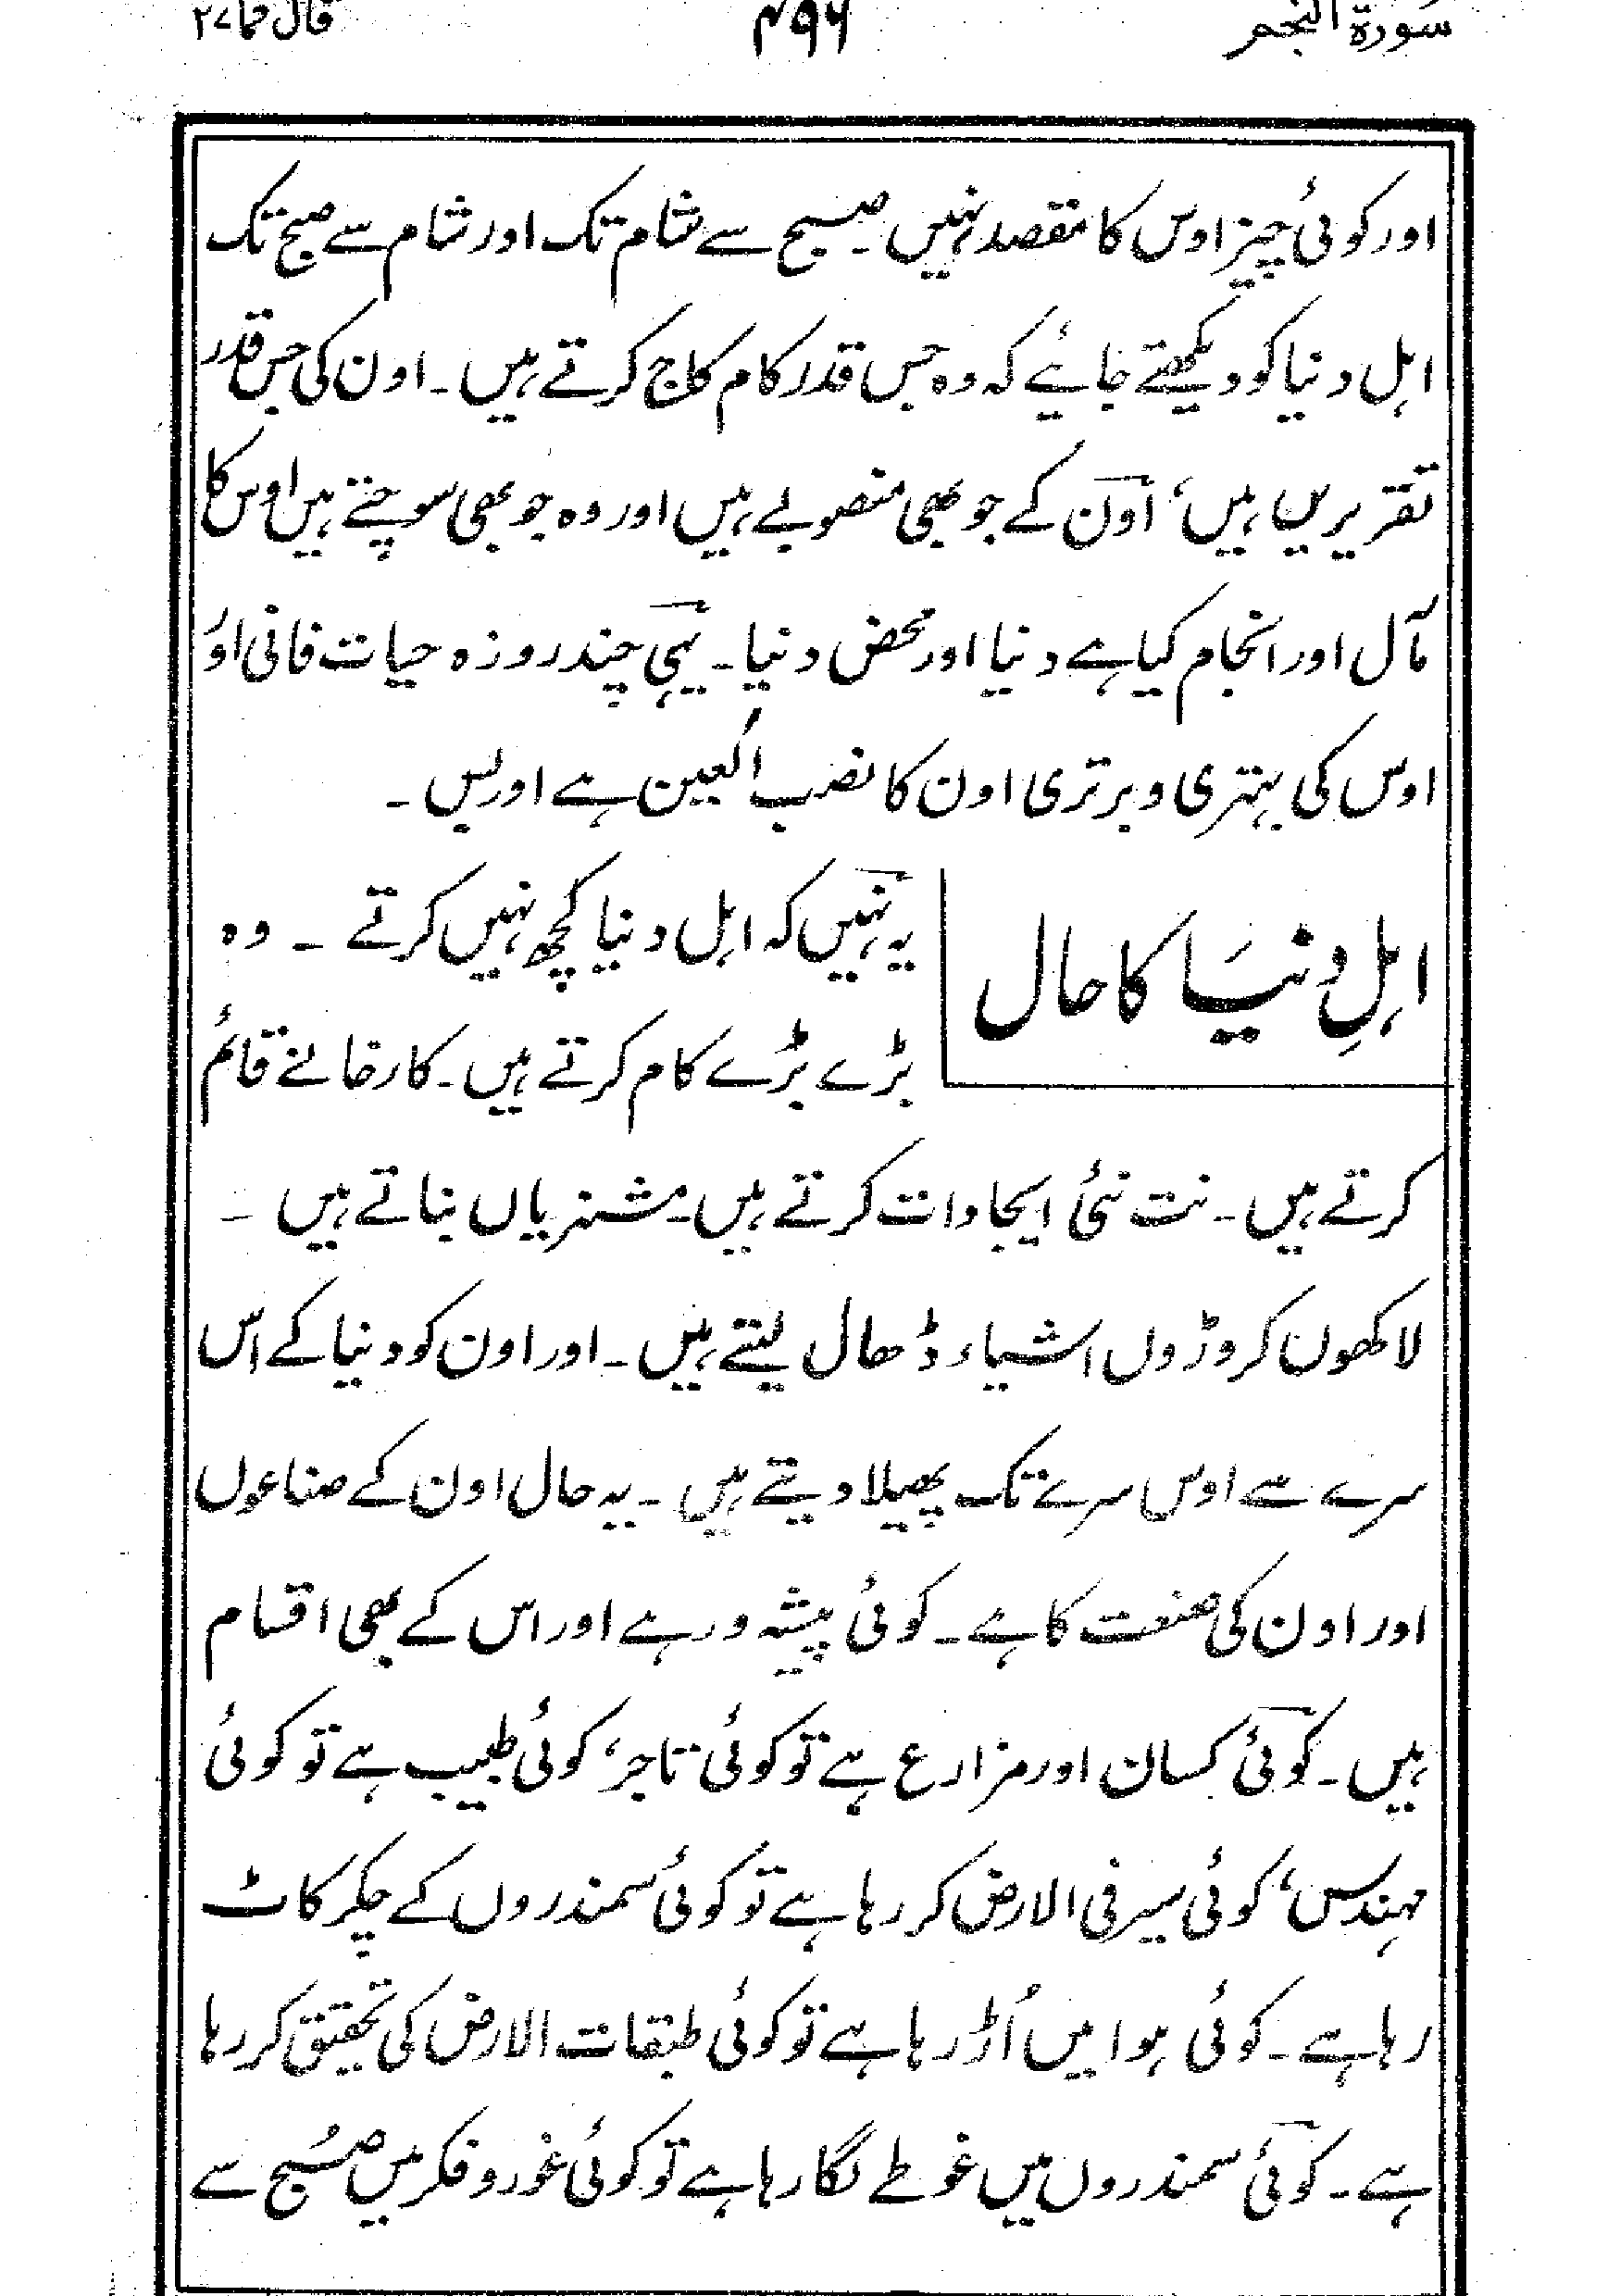 سورة النجم ۴۹۶ قال فما ۲۷
اور کوئی چیز اوس کا مقصد نہیں۔ صبح سے شام تک اور شام سے صبح تک
اہل دنیا کو دیکھتے جائیے کہ وہ جس قدر کام کاج کرتے ہیں۔ اون کی جس قدر
تقریریں ہیں، اون کے جو بھی منصوبے ہیں اور وہ جو بھی سوچتے ہیں اوس کا
مآل اور انجام کیا ہے دنیا اور محض دنیا۔ یہی چند روزہ حیات فانی اوُ
اوس کی بہتری و برتری اون کا نصب العین ہے اور بس۔
اہلِ دنیَا کا حال
یہ نہیں کہ اہل دنیا کچھ نہیں کرتے ۔ وہ
بڑے بڑے کام کرتے ہیں۔ کارخانے قائم
کرتے ہیں۔ نت نئی ایجادات کرتے ہیں۔ مشنریاں بناتے ہیں ۔
لاکھوں کروڑوں اشیاء ڈھال لیتے ہیں۔ اور اون کو دنیا کے اس
سرے سے اوس سرے تک پھیلا دیتے ہیں ۔ یہ حال اون کے صناعوں
اور اون کی صنعت کا ہے۔ کوئی پیشہ ور ہے اور اس کے بھی اقسام
ہیں۔ کوئی کسان اور مزارع ہے تو کوئی تاجر، کوئی طبیب ہے تو کوئی
مہندس، کوئی سیر فی الارض کر رہا ہے تو کوئی سمندروں کے چکر کاٹ
رہا ہے۔ کوئی ہوا میں اُڑ رہا ہے تو کوئی طبقات الارض کی تحقیق کر رہا
ہے۔ کوئی سمندروں میں غوطے لگا رہا ہے تو کوئی غور و فکر میں صُبح سے